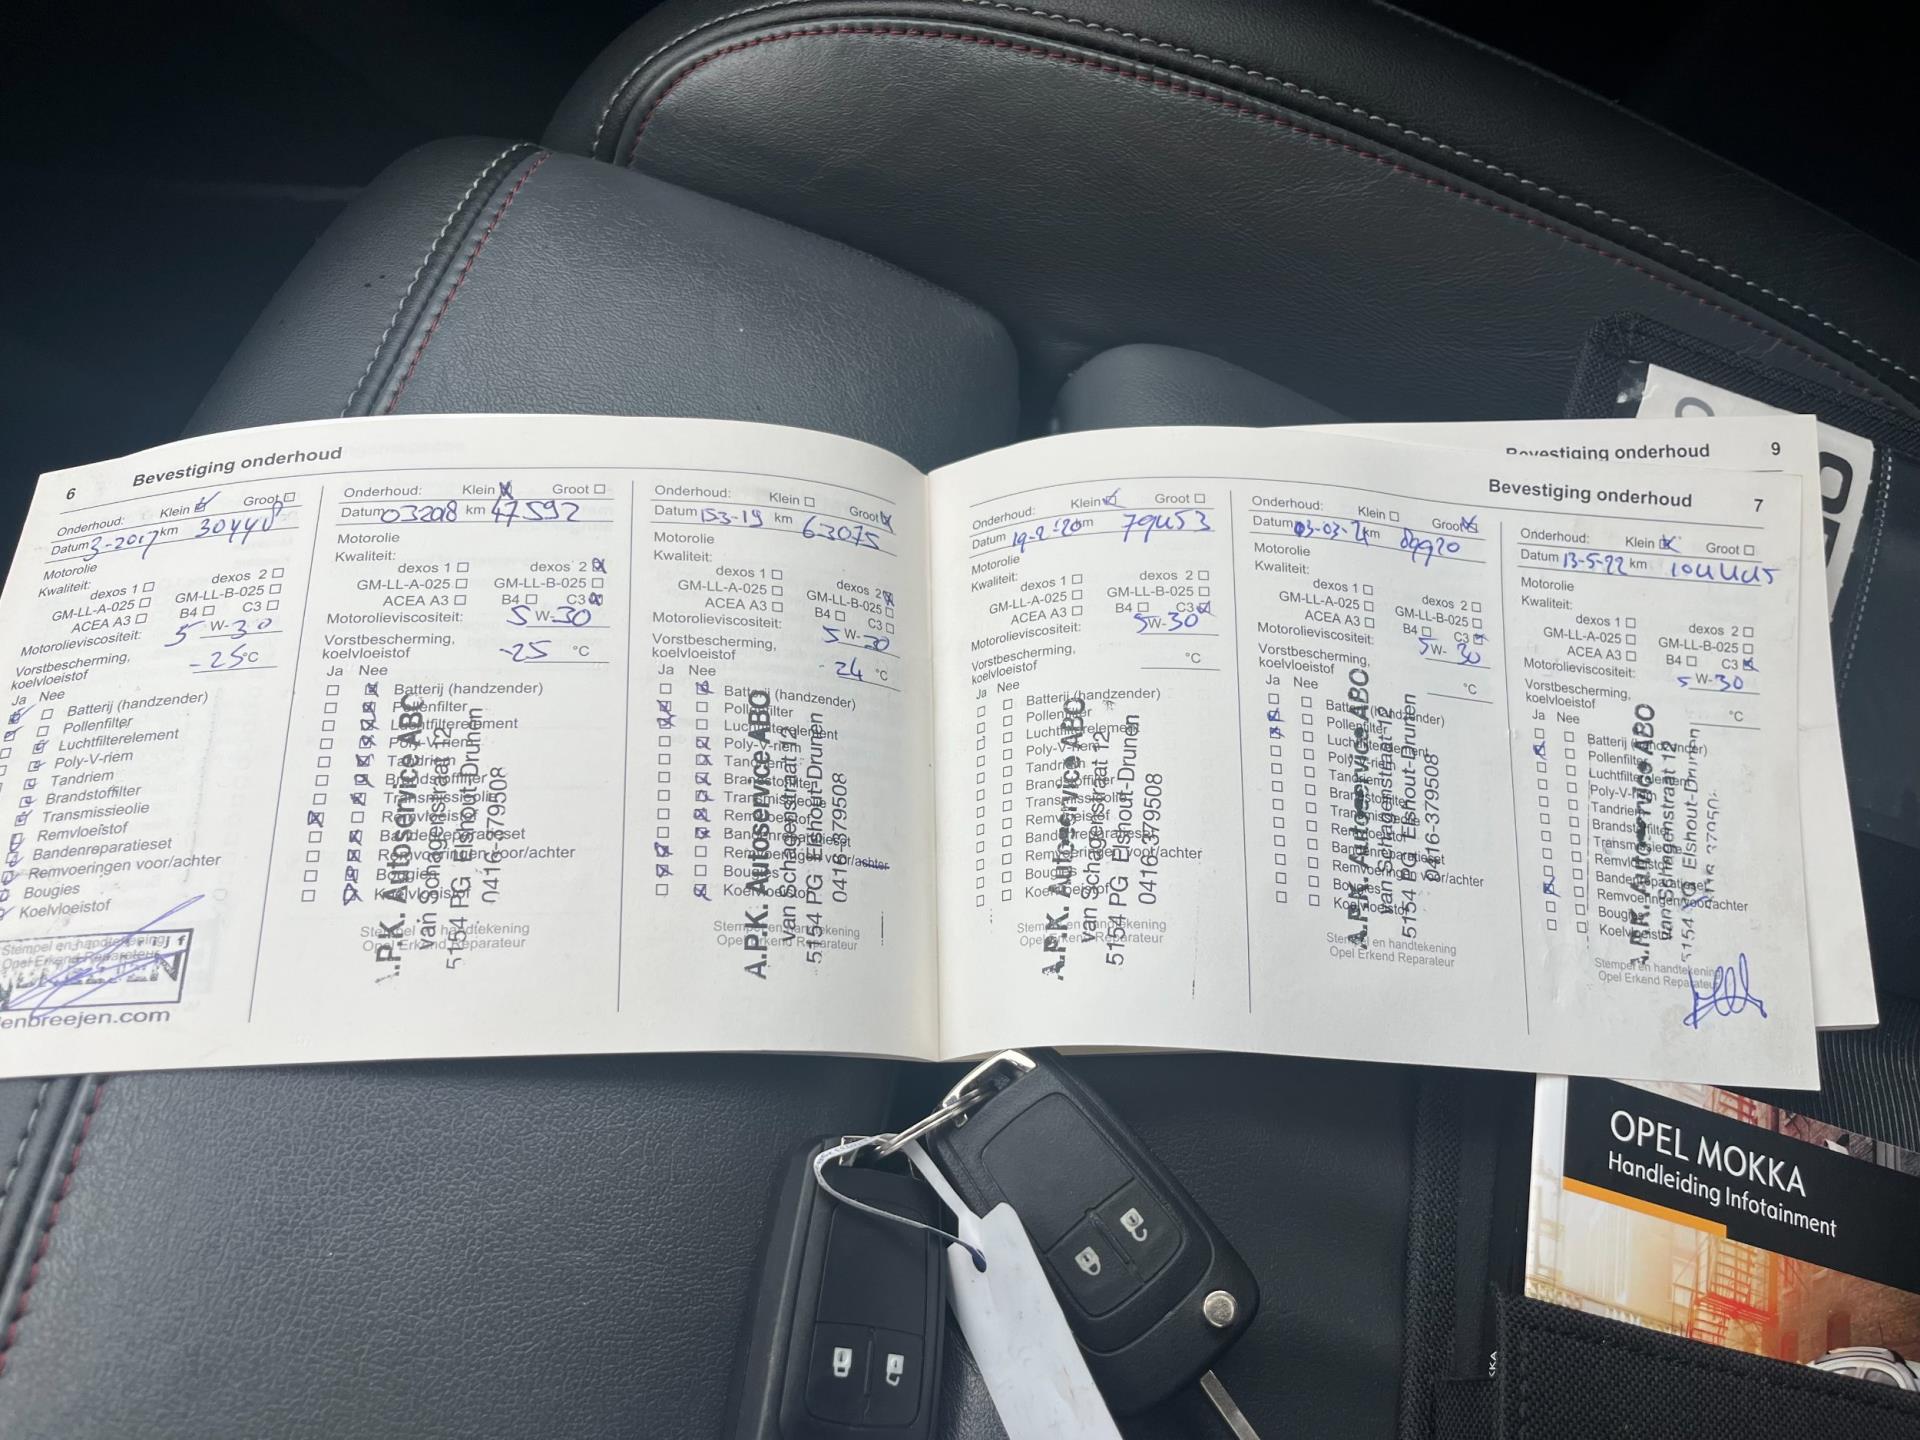 6 Bevestiging onderhoud
Onderhoud: Klein Groot
Datum 3-2017 km 30440
Motorolie
Kwaliteit:
dexos 1 dexos 2
GM-LL-A-025 GM-LL-B-025
ACEA A3 B4 C3
Motorolieviscositeit: 5 W-30
Vorstbescherming, koelvloeistof -25 °C
Ja Nee
Batterij (handzender)
Pollenfilter
Luchtfilterelement
Poly-V-riem
Tandriem
Brandstoffilter
Transmissieolie
Remvloeistof
Bandenreparatieset
Remvoeringen voor/achter
Bougies
Koelvloeistof
Stempel en handtekening
Opel Erkend Reparateur
enbreejen.com
Onderhoud: Klein Groot
Datum 032018 km 47592
Motorolie
Kwaliteit:
dexos 1 dexos 2
GM-LL-A-025 GM-LL-B-025
ACEA A3 B4 C3
Motorolieviscositeit: 5 W-30
Vorstbescherming, koelvloeistof -25 °C
Ja Nee
Batterij (handzender)
Pollenfilter
Luchtfilterelement
Poly-V-riem
Tandriem
Brandstoffilter
Transmissieolie
Remvloeistof
Bandenreparatieset
Remvoeringen voor/achter
Bougies
Koelvloeistof
Stempel en handtekening
Opel Erkend Reparateur
.P.K. Autoservice ABO
van Schagenstraat 12
5154 PG Elshout-Drunen
0416-379508
Onderhoud: Klein Groot
Datum 153-19 km 63075
Motorolie
Kwaliteit:
dexos 1 dexos 2
GM-LL-A-025 GM-LL-B-025
ACEA A3 B4 C3
Motorolieviscositeit: 5 W-30
Vorstbescherming, koelvloeistof -24 °C
Ja Nee
Batterij (handzender)
Pollenfilter
Luchtfilterelement
Poly-V-riem
Tandriem
Brandstoffilter
Transmissieolie
Remvloeistof
Bandenreparatieset
Remvoeringen voor/achter
Bougies
Koelvloeistof
Stempel en handtekening
Opel Erkend Reparateur
A.P.K. Autoservice ABO
van Schagenstraat 12
5154 PG Elshout-Drunen
0416-379508
Bevestiging onderhoud 9
Bevestiging onderhoud 7
Onderhoud: Klein Groot
Datum 19-2-'20 km 79453
Motorolie
Kwaliteit:
dexos 1 dexos 2
GM-LL-A-025 GM-LL-B-025
ACEA A3 B4 C3
Motorolieviscositeit: 5W-30
Vorstbescherming, koelvloeistof °C
Ja Nee
Batterij (handzender)
Pollenfilter
Luchtfilterelement
Poly-V-riem
Tandriem
Brandstoffilter
Transmissieolie
Remvloeistof
Bandenreparatieset
Remvoeringen voor/achter
Bougies
Koelvloeistof
Stempel en handtekening
Opel Erkend Reparateur
A.P.K. Autoservice ABO
van Schagenstraat 12
5154 PG Elshout-Drunen
0416-379508
Onderhoud: Klein Groot
Datum 03-03-21 km 89920
Motorolie
Kwaliteit:
dexos 1 dexos 2
GM-LL-A-025 GM-LL-B-025
ACEA A3 B4 C3
Motorolieviscositeit: 5W-30
Vorstbescherming, koelvloeistof °C
Ja Nee
Batterij (handzender)
Pollenfilter
Luchtfilterelement
Poly-V-riem
Tandriem
Brandstoffilter
Transmissieolie
Remvloeistof
Bandenreparatieset
Remvoeringen voor/achter
Bougies
Koelvloeistof
Stempel en handtekening
Opel Erkend Reparateur
A.P.K. Autoservice ABO
van Schagenstraat 12
5154 PG Elshout-Drunen
0416-379508
Onderhoud: Klein Groot
Datum 13-5-22 km 104445
Motorolie
Kwaliteit:
dexos 1 dexos 2
GM-LL-A-025 GM-LL-B-025
ACEA A3 B4 C3
Motorolieviscositeit: 5 W-30
Vorstbescherming, koelvloeistof °C
Ja Nee
Batterij (handzender)
Pollenfilter
Luchtfilterelement
Poly-V-riem
Tandriem
Brandstoffilter
Transmissieolie
Remvloeistof
Bandenreparatieset
Remvoeringen voor/achter
Bougies
Koelvloeistof
Stempel en handtekening
Opel Erkend Reparateur
A.P.K. Autoservice ABO
van Schagenstraat 12
5154 PG Elshout-Drunen
OPEL MOKKA
Handleiding Infotainment